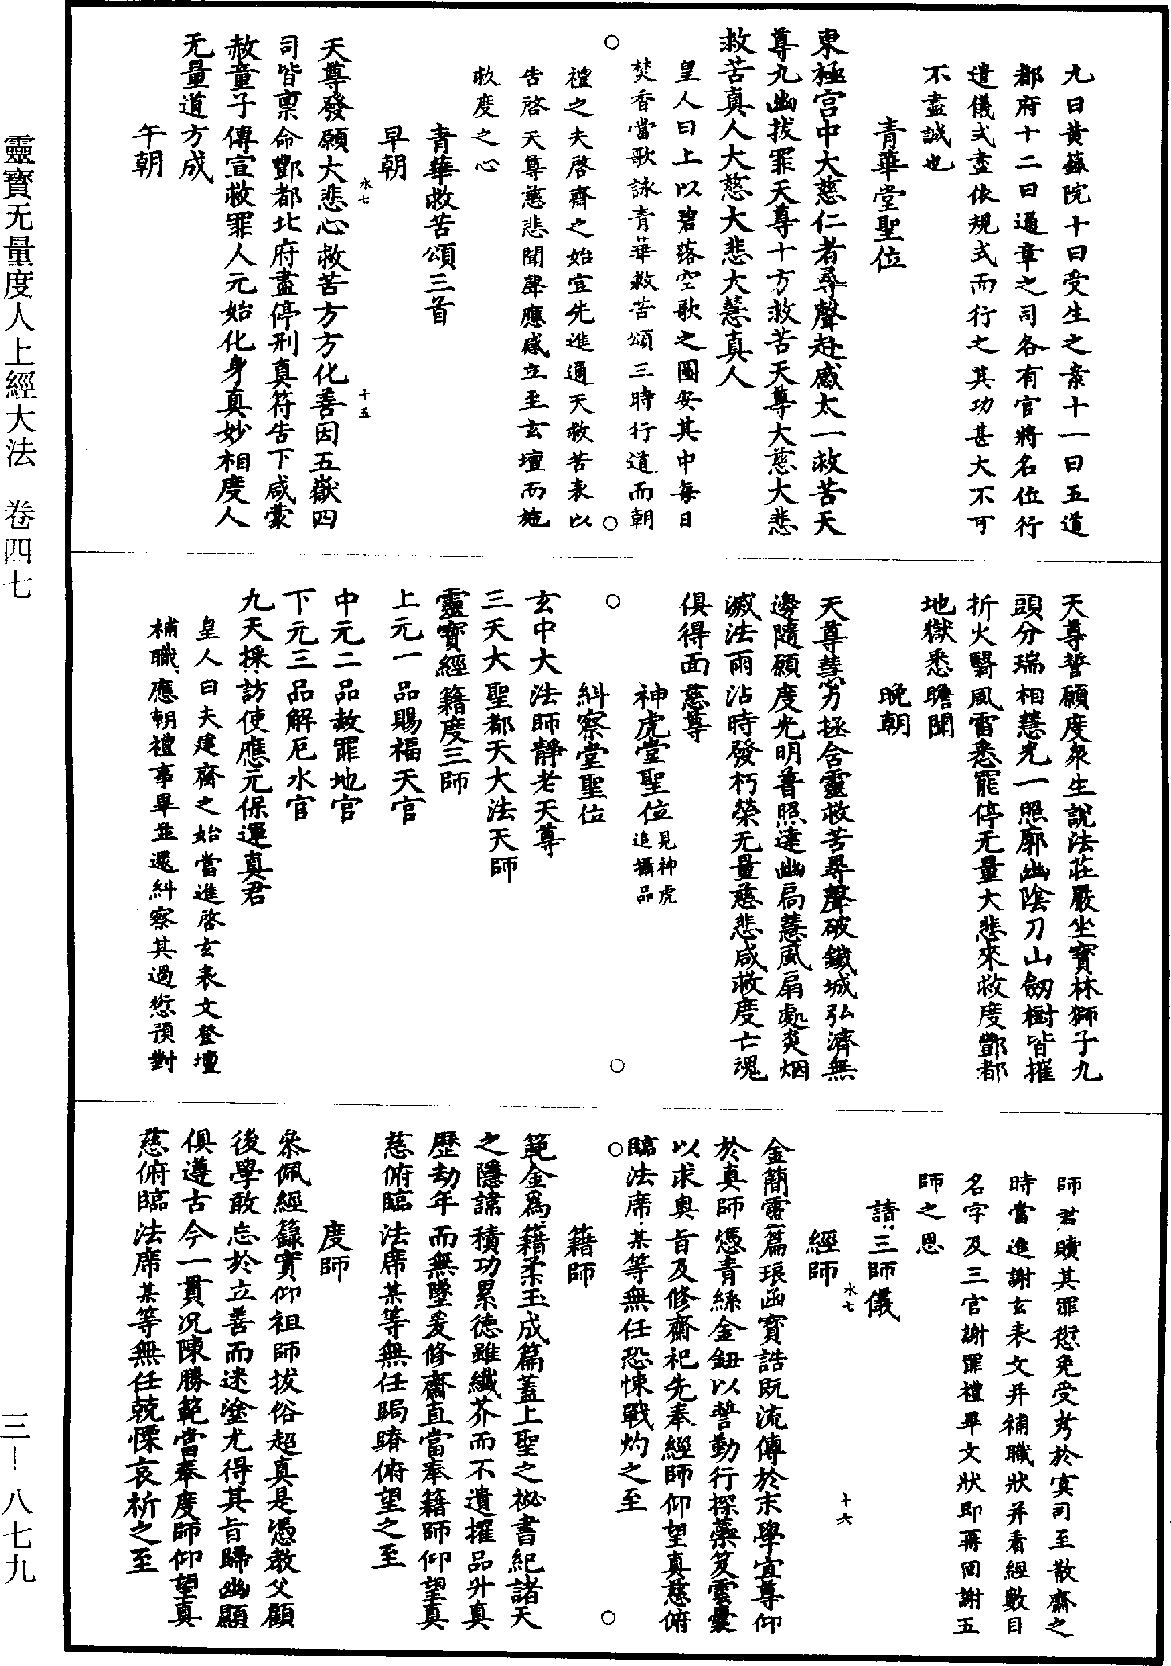 九曰黃籙院十曰受生之案十一曰五道
都府十二曰通章之司各有官將名位行
遣儀式盡依規式而行之其功甚大不可
不盡誠也
青華堂聖位
東極宮中大慈仁者尋聲赴感太一救苦天
尊九幽拔罪天尊十方救苦天尊大慈大悲
救苦真人大慈大悲大慧真人
皇人曰上以碧落空歌之圖安其中每日
焚香當歌詠青華救苦頌三時行道而朝
禮之夫啓齋之始宜先進通天救苦表以
告啓天尊慈悲聞聲應感立至玄壇而施
救度之心
青華救苦頌三首
早朝
天尊發願大悲心救苦方方化善因五嶽四
水七
十五
司皆禀命酆都北府盡停刑真符告下咸蒙
赦童子傳宣救罪人元始化身真妙相度人
无量道方成
午朝
天尊誓願度衆生說法莊嚴坐寶林獅子九
頭分瑞相慧光一照廓幽陰刀山劒樹皆摧
折火翳風雷悉罷停无量大悲來救度酆都
地獄悉聽聞
晚朝
天尊慧力拯含靈救苦尋聲破鐵城弘濟無
邊隨願度光明普照達幽扃慧風扇處爽烟
滅法雨沾時發朽榮无量慈悲咸救度亡魂
俱得面慈尊
神虎堂聖位見神虎追攝品
糾察堂聖位
玄中大法師靜老天尊
三天大聖都天大法天師
靈寶經籍度三師
上元一品賜福天官
中元二品赦罪地官
下元三品解厄水官
九天採訪使應元保運真君
皇人曰夫建齋之始當進啓玄表文登壇
補職應朝禮事畢並還糾察其過愆預對
師君贖其罪愆免受考於冥司至散齋之
時當進謝玄表文并補職狀并看經數目
名字及三官謝罪禮畢文狀即再回謝五
師之恩
請三師儀
經師
水七
十六
金簡靈篇琅函寶誥既流傳於末學宜尊仰
於真師憑青絲金鈕以誓勤行探蘂笈雲囊
以求奥旨及修齋祀先奉經師仰望真慈俯
臨法席某等無任恐悚戰灼之至
籍師
範金爲籍柔玉成篇蓋上聖之祕書紀諸天
之隱諱積功累德雖纖芥而不遺擢品升真
歷劫年而無墜爰修齋直當奉籍師仰望真
慈俯臨法席某等無任跼蹐俯望之至
度師
参佩經籙實仰祖師拔俗超真是憑教父顧
後學敢忘於立善而迷塗尤得其旨歸幽顯
俱遵古今一貫况陳勝範當奉度師仰望真
慈俯臨法席某等無任兢慄哀祈之至
靈寶无量度人上經大法 卷四七
三—八七九